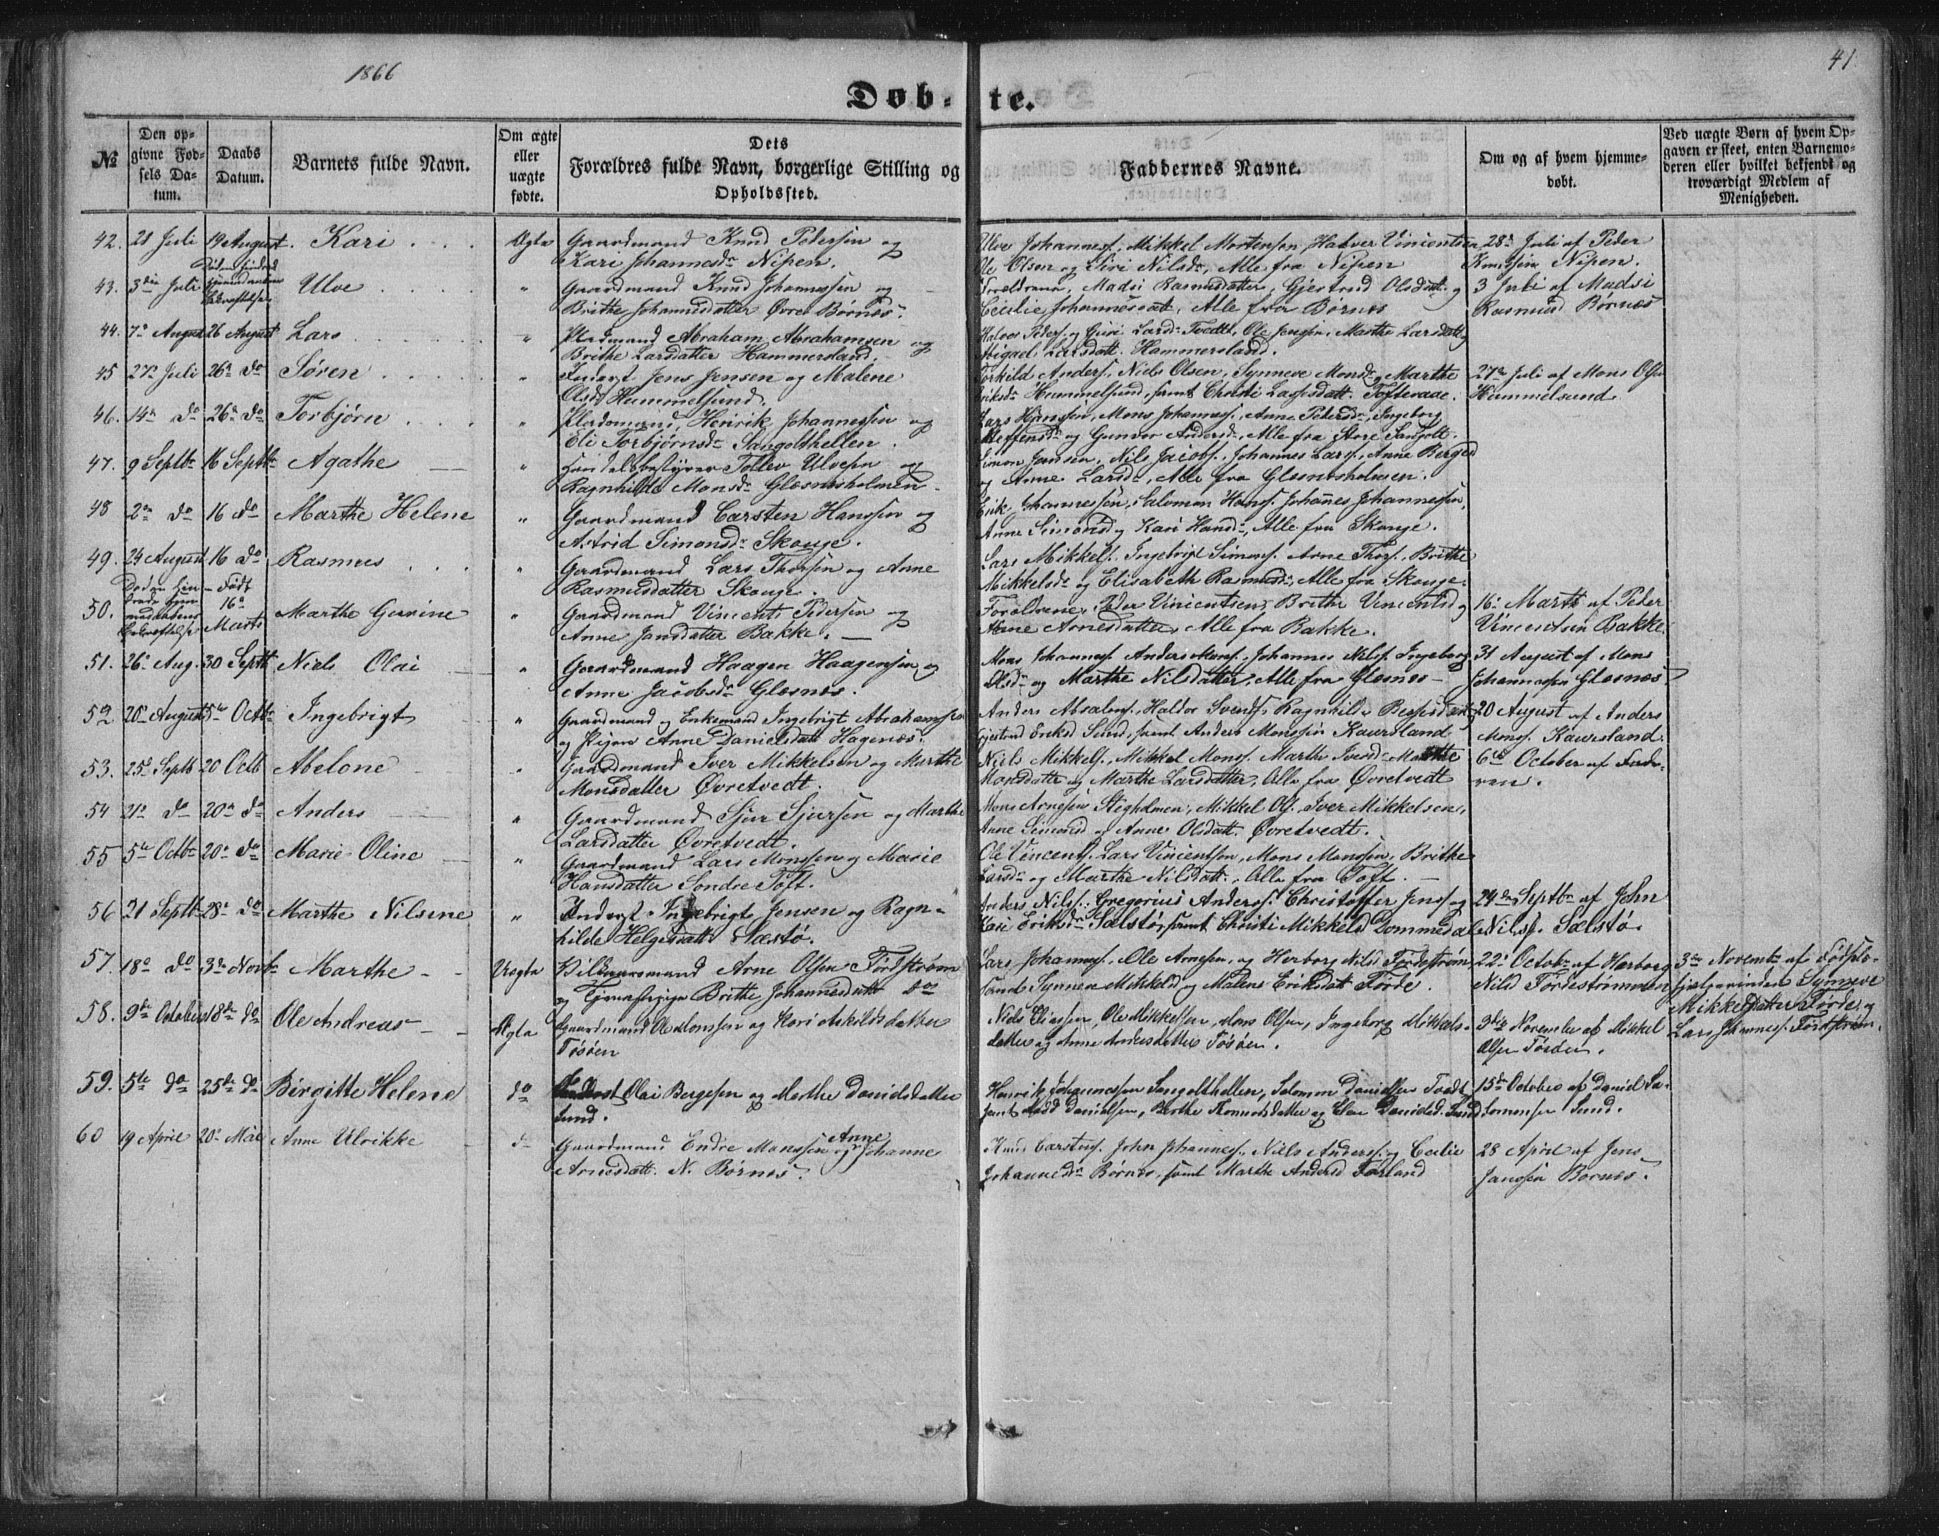 1866
41
Døbte.
№
Den opgivne Fødsels Datum.
Daabs Datum.
Barnets fulde Navn.
Om ægte eller uægte fødte.
Dets Forældres fulde Navn, borgerlige Stilling og Opholdssted.
Faddernes Navne.
Om og af hvem hjemmedøbt.
Ved uægte Børn af hvem Opgaven er skeet, enten Barnemoderen eller hvilket bekjendt og troværdigt Medlem af Menigheden.
42. 21 Juli 19 August. Kari Ægte Gaardmand Knud Pedersen og
Kari Johannesdr Nipen.
Ulve Johanness, Mikkel Mortensen Halvor Vincentsen
Ole Olsen og Siri Nilsdr, Alle fra Nipen
28 Juli af Peder
Knudsen Nipen.
43. 3die Juli Ulve Gaardmand Knud Johannessen og
Brithe Johannesdatter Øvre Børnes.
Forældrene, Madsi Rasmusdatter, Gjertrud Olsdatt. og
Cecilie Johannesdatt, Alle fra Børnes
3 Juli af Madsi
Rasmusd Børnes
44. 7de August 26 August Lars " Pladsmand Abraham Abrahamsen og
Brithe Larsdatter Hammersland.
Halvor Peders. og Guri Larsdr Tvedt, Ole Jensen, Marthe Larsdatt og
Abigael Larsdatt. Hammersland.
45 27de Juli 26de do Søren " Inderst Jens Jensen og Malene
Olsdr Hummelsund.
Torkild Anders., Niels Olsen, Synneve Monsdr, Marthe
Eriksdr Hummelsund, samt Christi Larsdatt. Toftevaag.
27de Juli af Mons Olsen
Hummelsund
46. 14de do 26de do Torbjørn " Pladsmand Henrik Johannessen og
Eli Torbjørnsdr Sangolthellen.
Lars Hansen, Mons Johanness, Anne Pedersdr, Ingeborg
Steffensdr og Gunvor Andersdr, Alle fra Store Sangolt.
47. 9 Septbr 16 Septbr Agathe " Handelsbestyrer Tollev Ulvesen og
Ragnhilde Monsdr Glesnesholmen.
Simon Jansen, Nils Jacobs., Johannes Lars., Anne Bergesd
og Anne Larsd., Alle fra Glesnesholmen.
48 2den do 16 do Marthe Helene " Gaardmand Carsten Hanssen og
Astrid Simonsdr Skouge.
Erik Johannessen, Salomon Hans., Johanes Johannessen,
Anne Simonsd og Kari Hansdr, Alle fra Skouge.
49. 24 August 16 do Rasmus " Gaardmand Lars Thorsen og Anne
Rasmusdatter Skouge.
Lars Mikkels. Ingebrigt Simons. Arne Thors. Brithe
Mikkelsdr og Elisabeth Rasmusdr, Alle fra Skouge.
50. Født 16de Marts Marthe Gurine " Gaardmand Vincents Pedersen og
Anne Jansdatter Bakke.
Forældrene, Peder Vincentsen, Brithe Vincentsd og
Anne Arnesdatter, Alle fra Bakke.
16de Marth af Peder
Vincentsen Bakke.
51. 26de Aug. 30 Septbr Niels Olai " Gaardmand Haagen Haagensen og
Anne Jacobsdr Glesnes.
Mons Johanness Anders Mons., Johannes Nils., Ingeborg
Olsdr og Marthe Nilsdatter, Alle fra Glesnes
31 August af Mons
Johannessen Glesnes.
52 20de August 5te Octbr Ingebrigt " Gaardmand og Enkemand Ingebrigt Abrahamsen
og Pigen Anne Danielsdatt Hagenæs.
Anders Absalons. Haldor Svends. Ragnhilde
Gjertrud Eriksd Sund, samt Anders Monssen Kaursland
20 August af Anders
Mons. Kaursland.
53. 25de Septb 20 Octb Abelone " Gaardmand Iver Mikkelsen og Marthe
Monsdatter Øvretvedt.
Niels Mikkels. Mikkel Mons. Marthe Iversdr Marthe
Monsdatter og Marthe Larsdatter, Alle fra Øvretvedt
6te October af Faderen.
54 21de do 20de do Anders " Gaardmand Sjur Sjursen og Marthe
Larsdatter Øvretvedt.
Mons Arnesen Stegholmen, Mikkel Ols. Iver Mikkelsen,
Anne Simonsd og Anne Olsdatt. Øvretvedt.
55 5te Octbr 20de do Marie Oline " Gaardmand Lars Monssen og Marie
Hansdatter Søndre Toft.
Ole Vincents. Lars Vincentsen, Mons Monssen, Brithe
Larsdr og Marthe Nilsdatt., Alle fra Toft.
56 21 Septbr 28de do Marthe Nilsine " Inderst Ingebrigt Jensen og Ragnhilde
Helgesdatt Sælstø.
Anders Nils., Gregorius Anders. Christoffer Jens. og
Kari Eriksdr Sælstø, samt Christi Mikkelsd Tommedal
24de Septbr af John
Nils. Sælstø.
57. 18de do 3die Novbr Marthe Uægte Arne Olsen Førdestrøm
og Tjenestepige Brithe Johannesdatt do
Lars Johannes., Ole Arnesen, og Herborg Nilsd Førdestrøm
samt Synneve Mikkelsd og Malene Eriksdatt Førde.
22de Octobr af Herborg
Nilsd Førdestrømmen
3die Novembr af
Synneve
Mikkelsdatter Førde og
Lars Johannes. Førdestrøm.
58. 9de October 18de do Ole Andreas Ægte Gaardmand Ole Monssen og Kari Askildsdatter
Tøsøen
Niels Eliassen, Ole Mikkelsen, Mons Olsen, Ingeborg Mikkelsdatter
og Anne Andersdatter Tøsøen.
3die November af Mikkel
Olsen Tøsøen.
59. 5te do 25de do Birgitte Helene do Inderst Olai Bergesen og Marthe Danielsdatter
Sund.
Henrik Johannessen Sangolthellen, Salomon Danielsen Tvedt
15de October af Daniel Salomonsen
Sund.
60 19 April 20de Mai Anne Ulrikke do Gaardmand Endre Monssen og Anne Johanne
Arnesdatt. N. Børnes.
Knud Carstens. John Johannes., Niels Anders. og Cecilie
Johannesdr Børnes, samt Marthe Andersd Førland
28 April af Jens
Jansen Børnes.